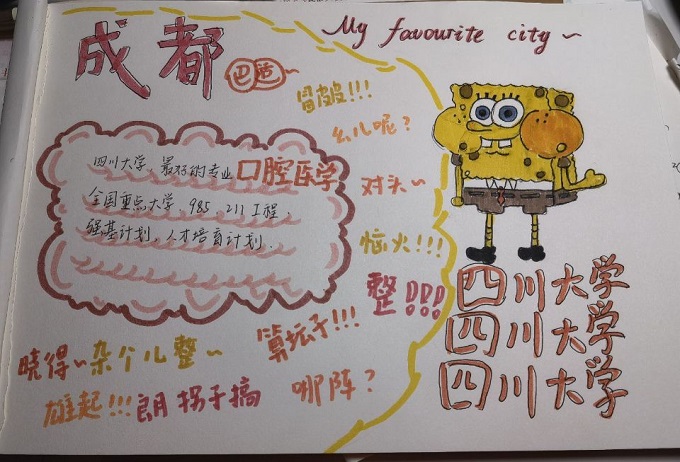 成都
My favourite city ~
巴适~
冒皮皮!!!
幺儿呢?
四川大学,最好的专业 口腔医学
全国重点大学,985,211工程,
强基计划,人才培育计划.
对头~
恼火!!!
整!!!
四川大学
四川大学
四川大学
算坛子!!!
晓得~杂个儿整~
哪阵?
雄起!!!朗拐子搞